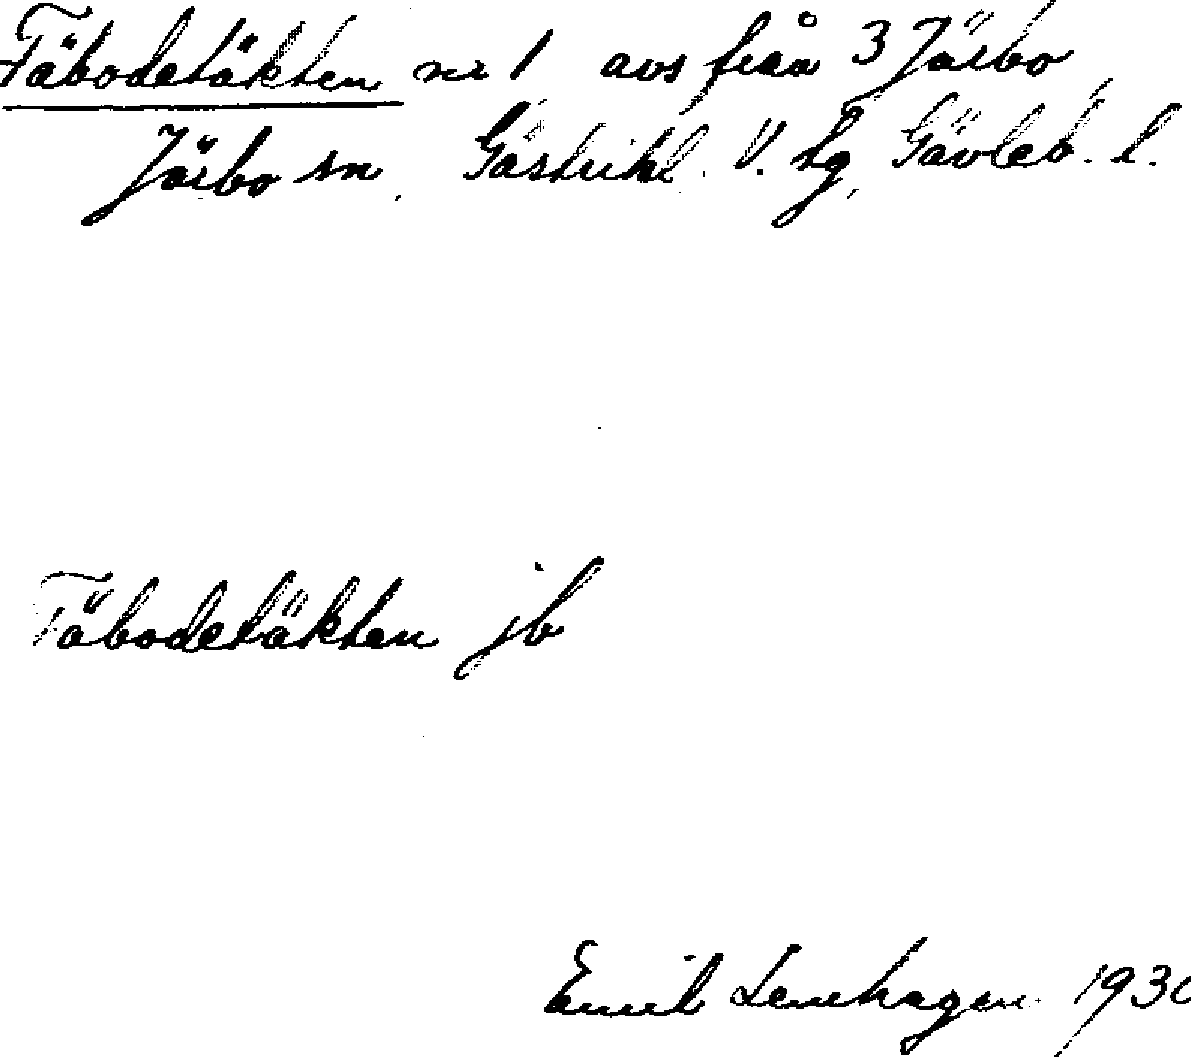 Täbodetäkten nr 1 avs från 3 Järbo
Järbo sn, Gästrikl. V. tg, Gävleb. l.
Täbodetäkten jb
Emil Lenhagen 1930